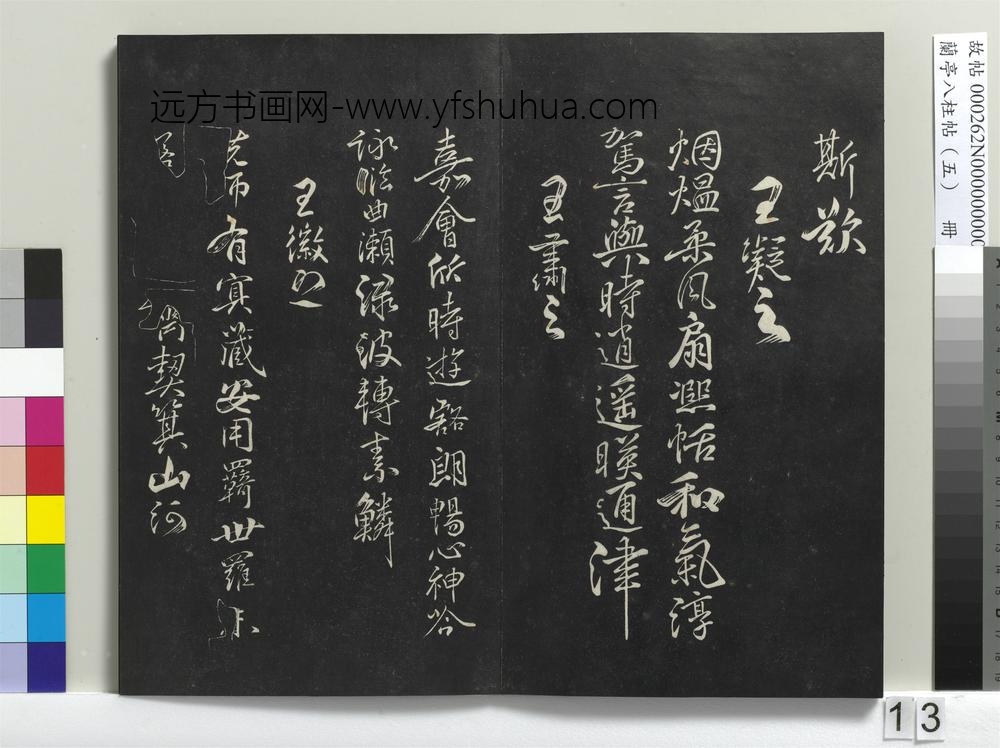 远方书画网-www.yfshuhua.com
斯歎
王凝之
烟熅柔風扇熈恬和氣淳
駕言興時逍遥暎通津
王肅之
嘉會欣時遊豁朗暢心神吟
詠曲瀨淥波轉素鱗
王徽之
先師有冥藏安用羈世羅未
若齊契箕山河
故帖 000262N000000000
蘭亭八柱帖（五） 冊
13